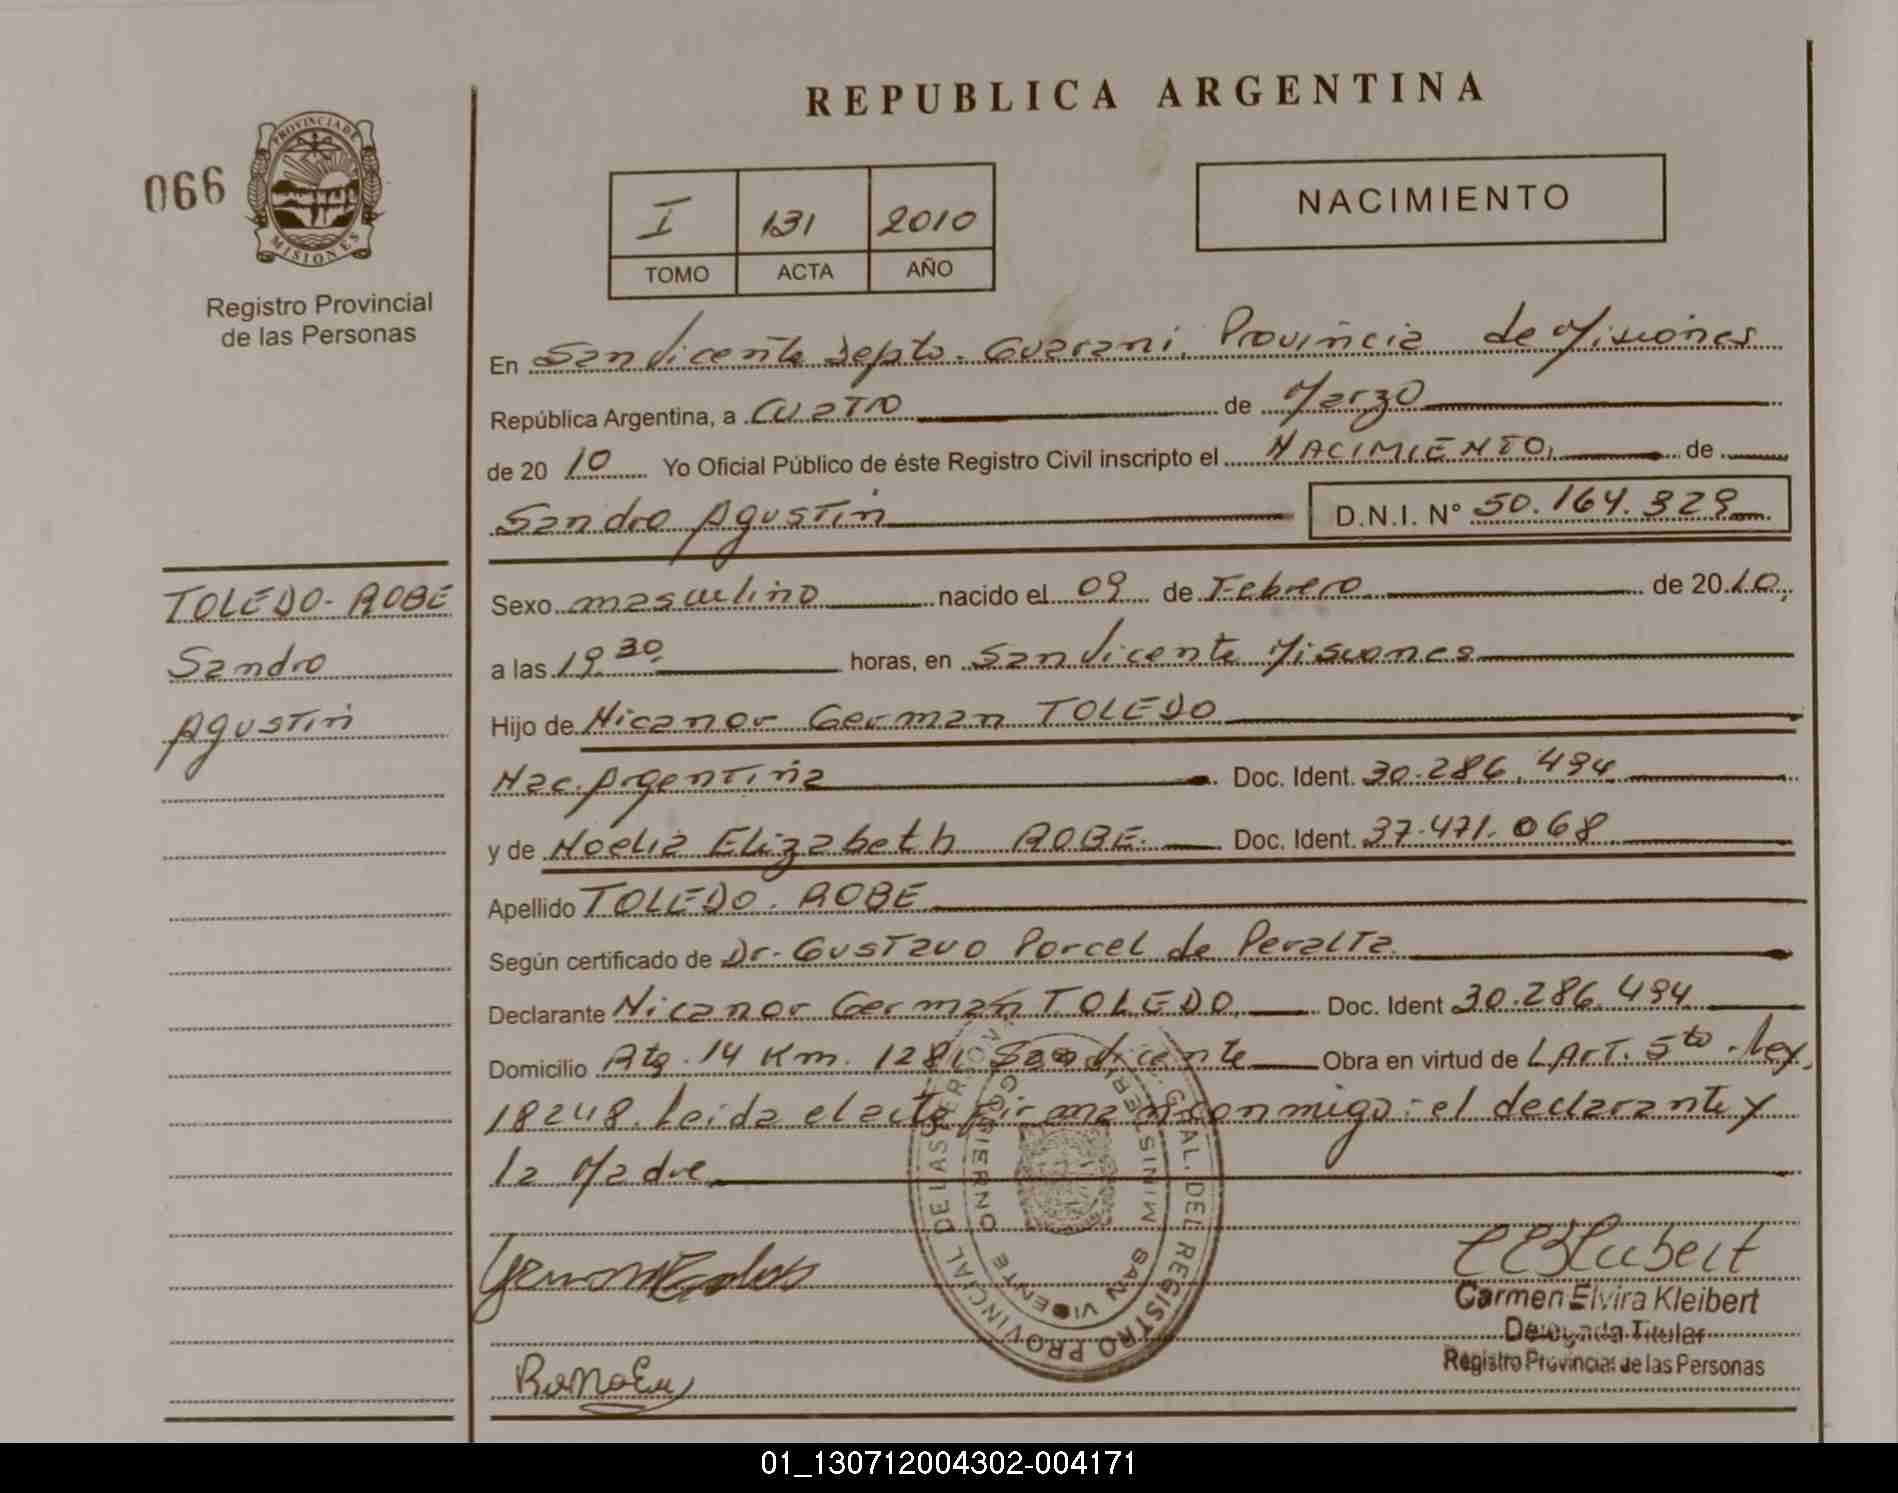 REPUBLICA ARGENTINA
066
PROVINCIA DE
MISIONES
Registro Provincial
de las Personas
I 131 2010
TOMO ACTA AÑO
NACIMIENTO
En San Vicente Depto. Guarani, Provincia de Misiones
República Argentina, a Cuatro de Marzo
de 20 10 Yo Oficial Público de éste Registro Civil inscripto el NACIMIENTO, de
Sandro Agustin D.N.I. N° 50.164.329
TOLEDO-ROBE
Sandro
Agustin
Sexo masculino nacido el 09 de Febrero de 20 10,
a las 19.30, horas, en San Vicente Misiones
Hijo de Nicanor German TOLEDO
Nac. Argentina Doc. Ident. 30.286.494
y de Noelia Elizabeth ROBE. Doc. Ident. 37.471.068
Apellido TOLEDO. ROBE
Según certificado de Dr. Gustavo Porcel de Peralta.
Declarante Nicanor German TOLEDO, Doc. Ident 30.286.494
Domicilio Rta. 14 Km. 1281 San Vicente Obra en virtud de L Art. 5to. Ley
18248. Leida el acta firman conmigo: el declarante y
la Madre
REGISTRO PROVINCIAL DE LAS
GRAL. DEL
GOBIERNO
SAN VICENTE
Carmen Elvira Kleibert
Delegada Titular
Registro Provincial de las Personas
01_130712004302-004171